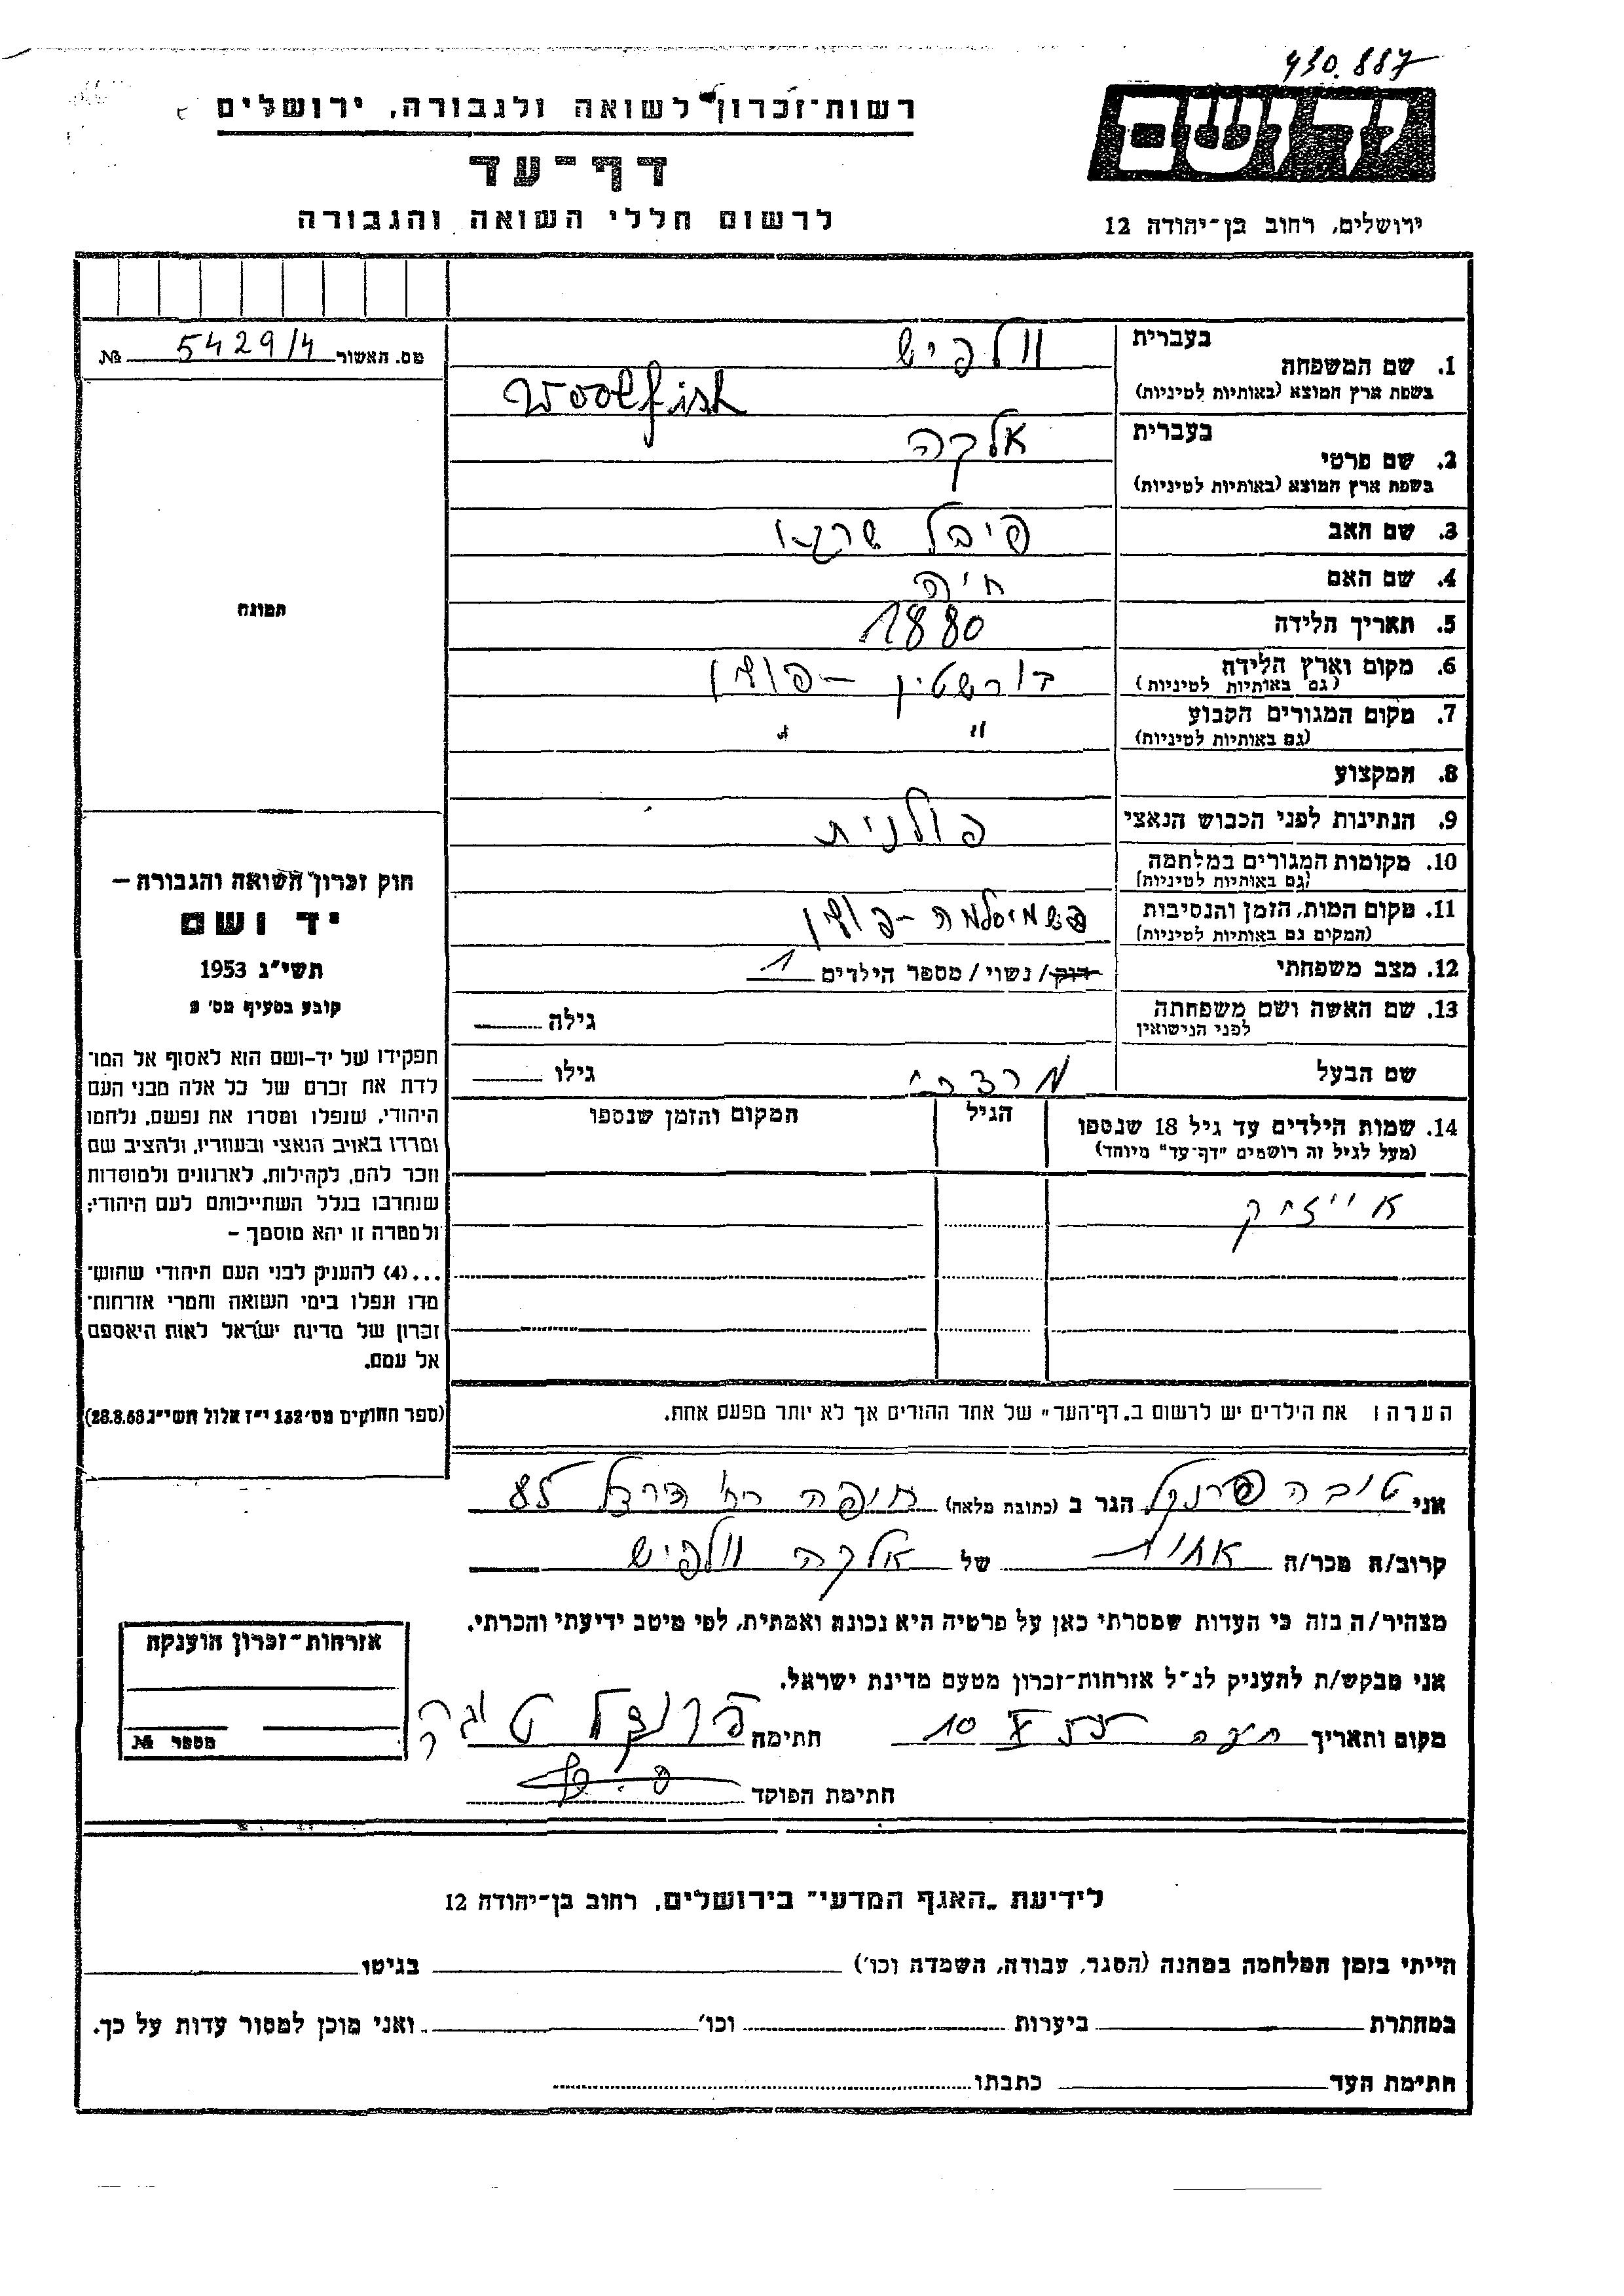 430.887
רשות־זכרון לשואה ולגבורה, ירושלים
דף־עד
לרשום חללי השואה והגבורה
יד ושם
ירושלים, רחוב בן־יהודה 12
מס. האשור 5429/4 №
בעברית
1. שם המשפחה וולפיש
בשפת ארץ המוצא (באותיות לטיניות) Woolfish
בעברית
2. שם פרטי אלקה
בשפת ארץ המוצא (באותיות לטיניות)
3. שם האב פייבל
4. שם האם חיה
5. תאריך הלידה 1880
6. מקום וארץ הלידה בורשטין – פולין
(גם באותיות לטיניות)
7. מקום המגורים הקבוע " "
(גם באותיות לטיניות)
8. המקצוע
9. הנתינות לפני הכבוש הנאצי פולנית
10. מקומות המגורים במלחמה
(גם באותיות לטיניות)
11. מקום המות, הזמן והנסיבות – פולין
(המקום גם באותיות לטיניות)
12. מצב משפחתי רווק / נשוי / מספר הילדים 1
13. שם האשה ושם משפחתה גילה
לפני הנישואין
שם הבעל מרדכי גילו
14. שמות הילדים עד גיל 18 שנספו הגיל המקום והזמן שנספו
(מעל לגיל זה רושמים "דף־עד" מיוחד)
אייזיק
הערה: את הילדים יש לרשום ב„דף־העד" של אחד ההורים אך לא יותר מפעם אחת.
תמונה
חוק זכרון השואה והגבורה –
יד ושם
תשי"ג 1953
קובע בסעיף מס' 2
תפקידו של יד-ושם הוא לאסוף אל המו־
לדת את זכרם של כל אלה מבני העם
היהודי, שנפלו ומסרו את נפשם, נלחמו
ומרדו באויב הנאצי ובעוזריו, ולהציב שם
וזכר להם, לקהילות, לארגונים ולמוסדות
שנחרבו בגלל השתייכותם לעם היהודי;
ולמטרה זו יהא מוסמך –
...(4) להעניק לבני העם היהודי שהוש־
מדו ונפלו בימי השואה והמרי אזרחות־
זכרון של מדינת ישראל לאות היאספם
אל עמם.
(ספר החוקים מס' 132 י"ז אלול תשי"ג 28.8.53)
אני טובה פרנקל הגר ב (כתובת מלאה) חיפה רח'
קרוב/ה מכר/ה אחות של אלקה וולפיש
מצהיר/ה בזה כי העדות שמסרתי כאן על פרטיה היא נכונה ואמתית, לפי מיטב ידיעתי והכרתי.
אני מבקש/ת להעניק לנ"ל אזרחות־זכרון מטעם מדינת ישראל.
מקום ותאריך חיפה חתימה פרנקל טובה
חתימת הפוקד
אזרחות־זכרון הוענקה
מספר №
לידיעת „האגף המדעי" בירושלים, רחוב בן־יהודה 12
הייתי בזמן המלחמה במחנה (הסגר, עבודה, השמדה וכו') בגיטו
במחתרת ביערות וכו' ואני מוכן למסור עדות על כך.
חתימת העד כתבתו